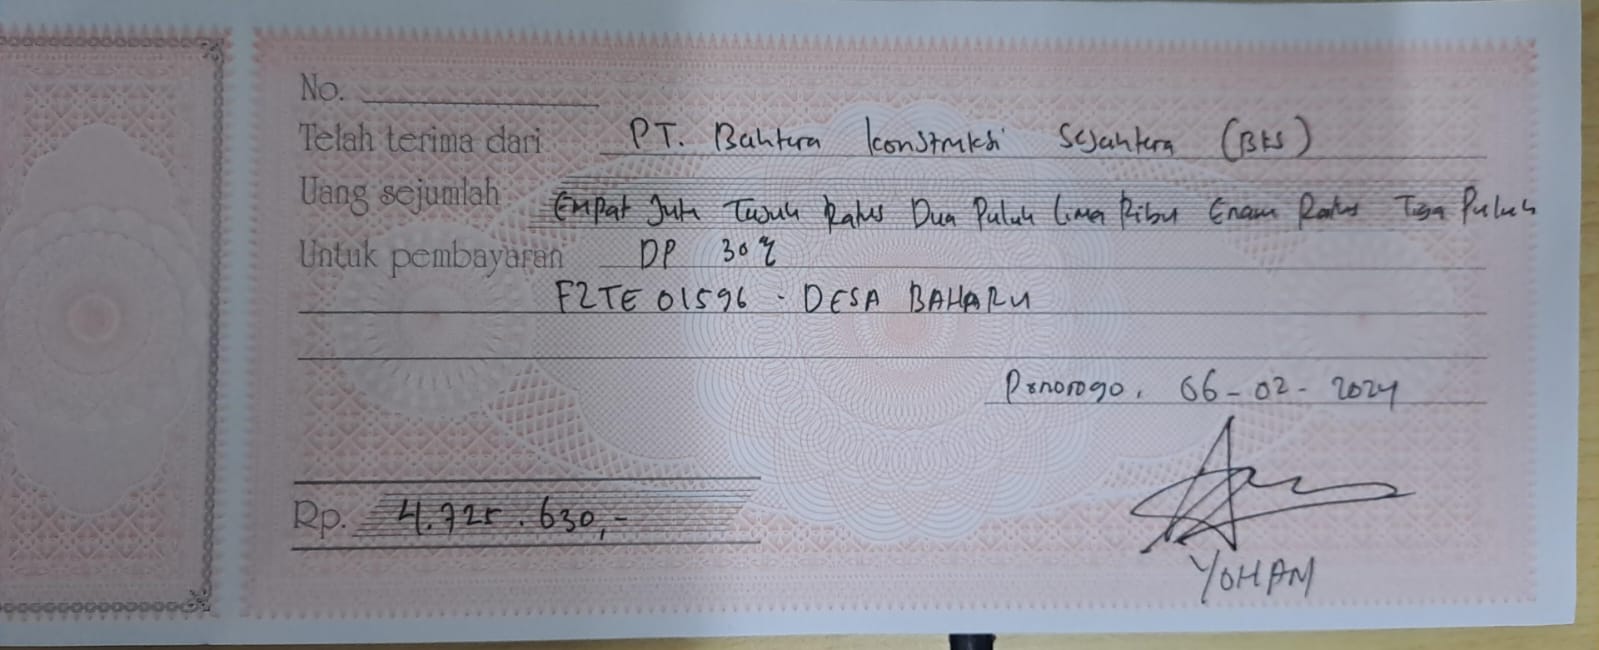 No.
Telah terima dari PT. Bahtera Konstruksi Sejahtera (BKS)
Uang sejumlah Empat Juta Tujuh Ratus Dua Puluh Lima Ribu Enam Ratus Tiga Puluh
Untuk pembayaran DP 30%
F2TE 01596 - DESA BAHARU
Ponorogo, 06-02-2024
Rp. 4.725.630,-
YOHAN